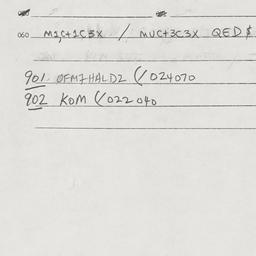 060 M1C+1C3X / MUC+3C3X QED $
901 OFM7HALD2 (/024070
902 KOM (/022040